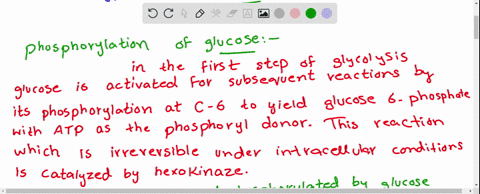 phosphorylation of glucose:-
in the first step of glycolysis
glucose is activated for subsequent reactions by
its phosphorylation at C-6 to yield glucose 6-phosphate
with ATP as the phosphoryl donor. This reaction
which is irreversible under intracellular conditions
is catalyzed by hexokinaze.
phosphorylated by glucose